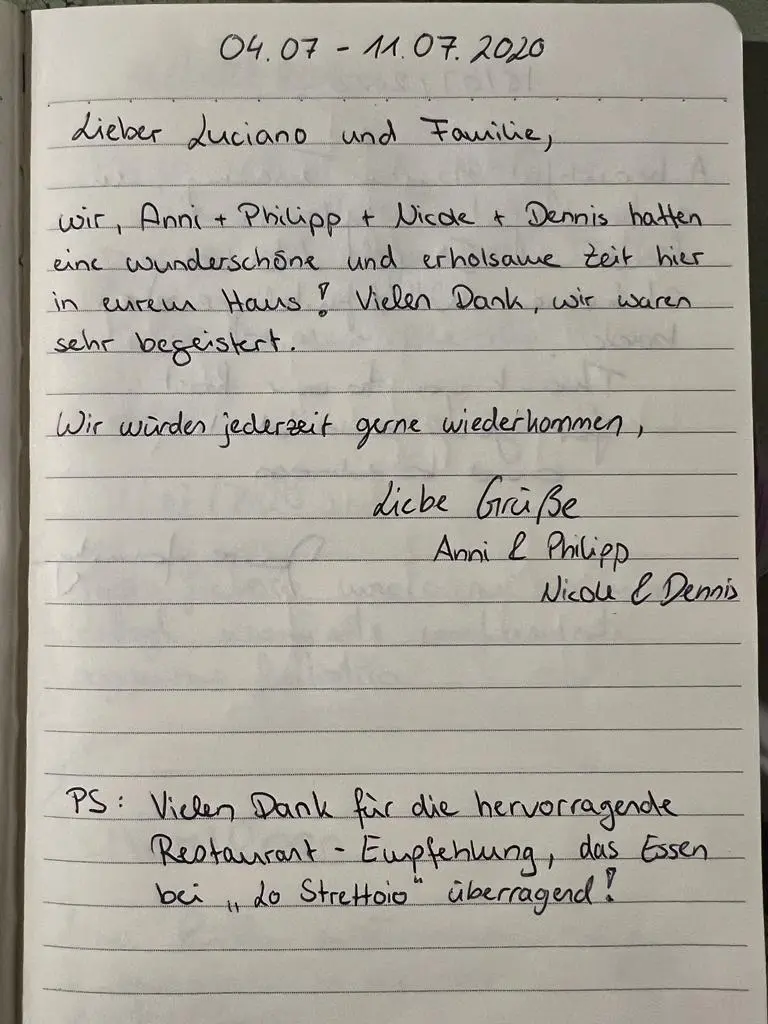 04.07 - 11.07.2020
Lieber Luciano und Familie,
wir, Anni + Philipp + Nicole + Dennis hatten
eine wunderschöne und erholsame Zeit hier
in eurem Haus! Vielen Dank, wir waren
sehr begeistert.
Wir würden jederzeit gerne wiederkommen,
Liebe Grüße
Anni & Philipp
Nicole & Dennis
PS: Vielen Dank für die hervorragende
Restaurant - Empfehlung, das Essen
bei „Lo Strettoio“ überragend!